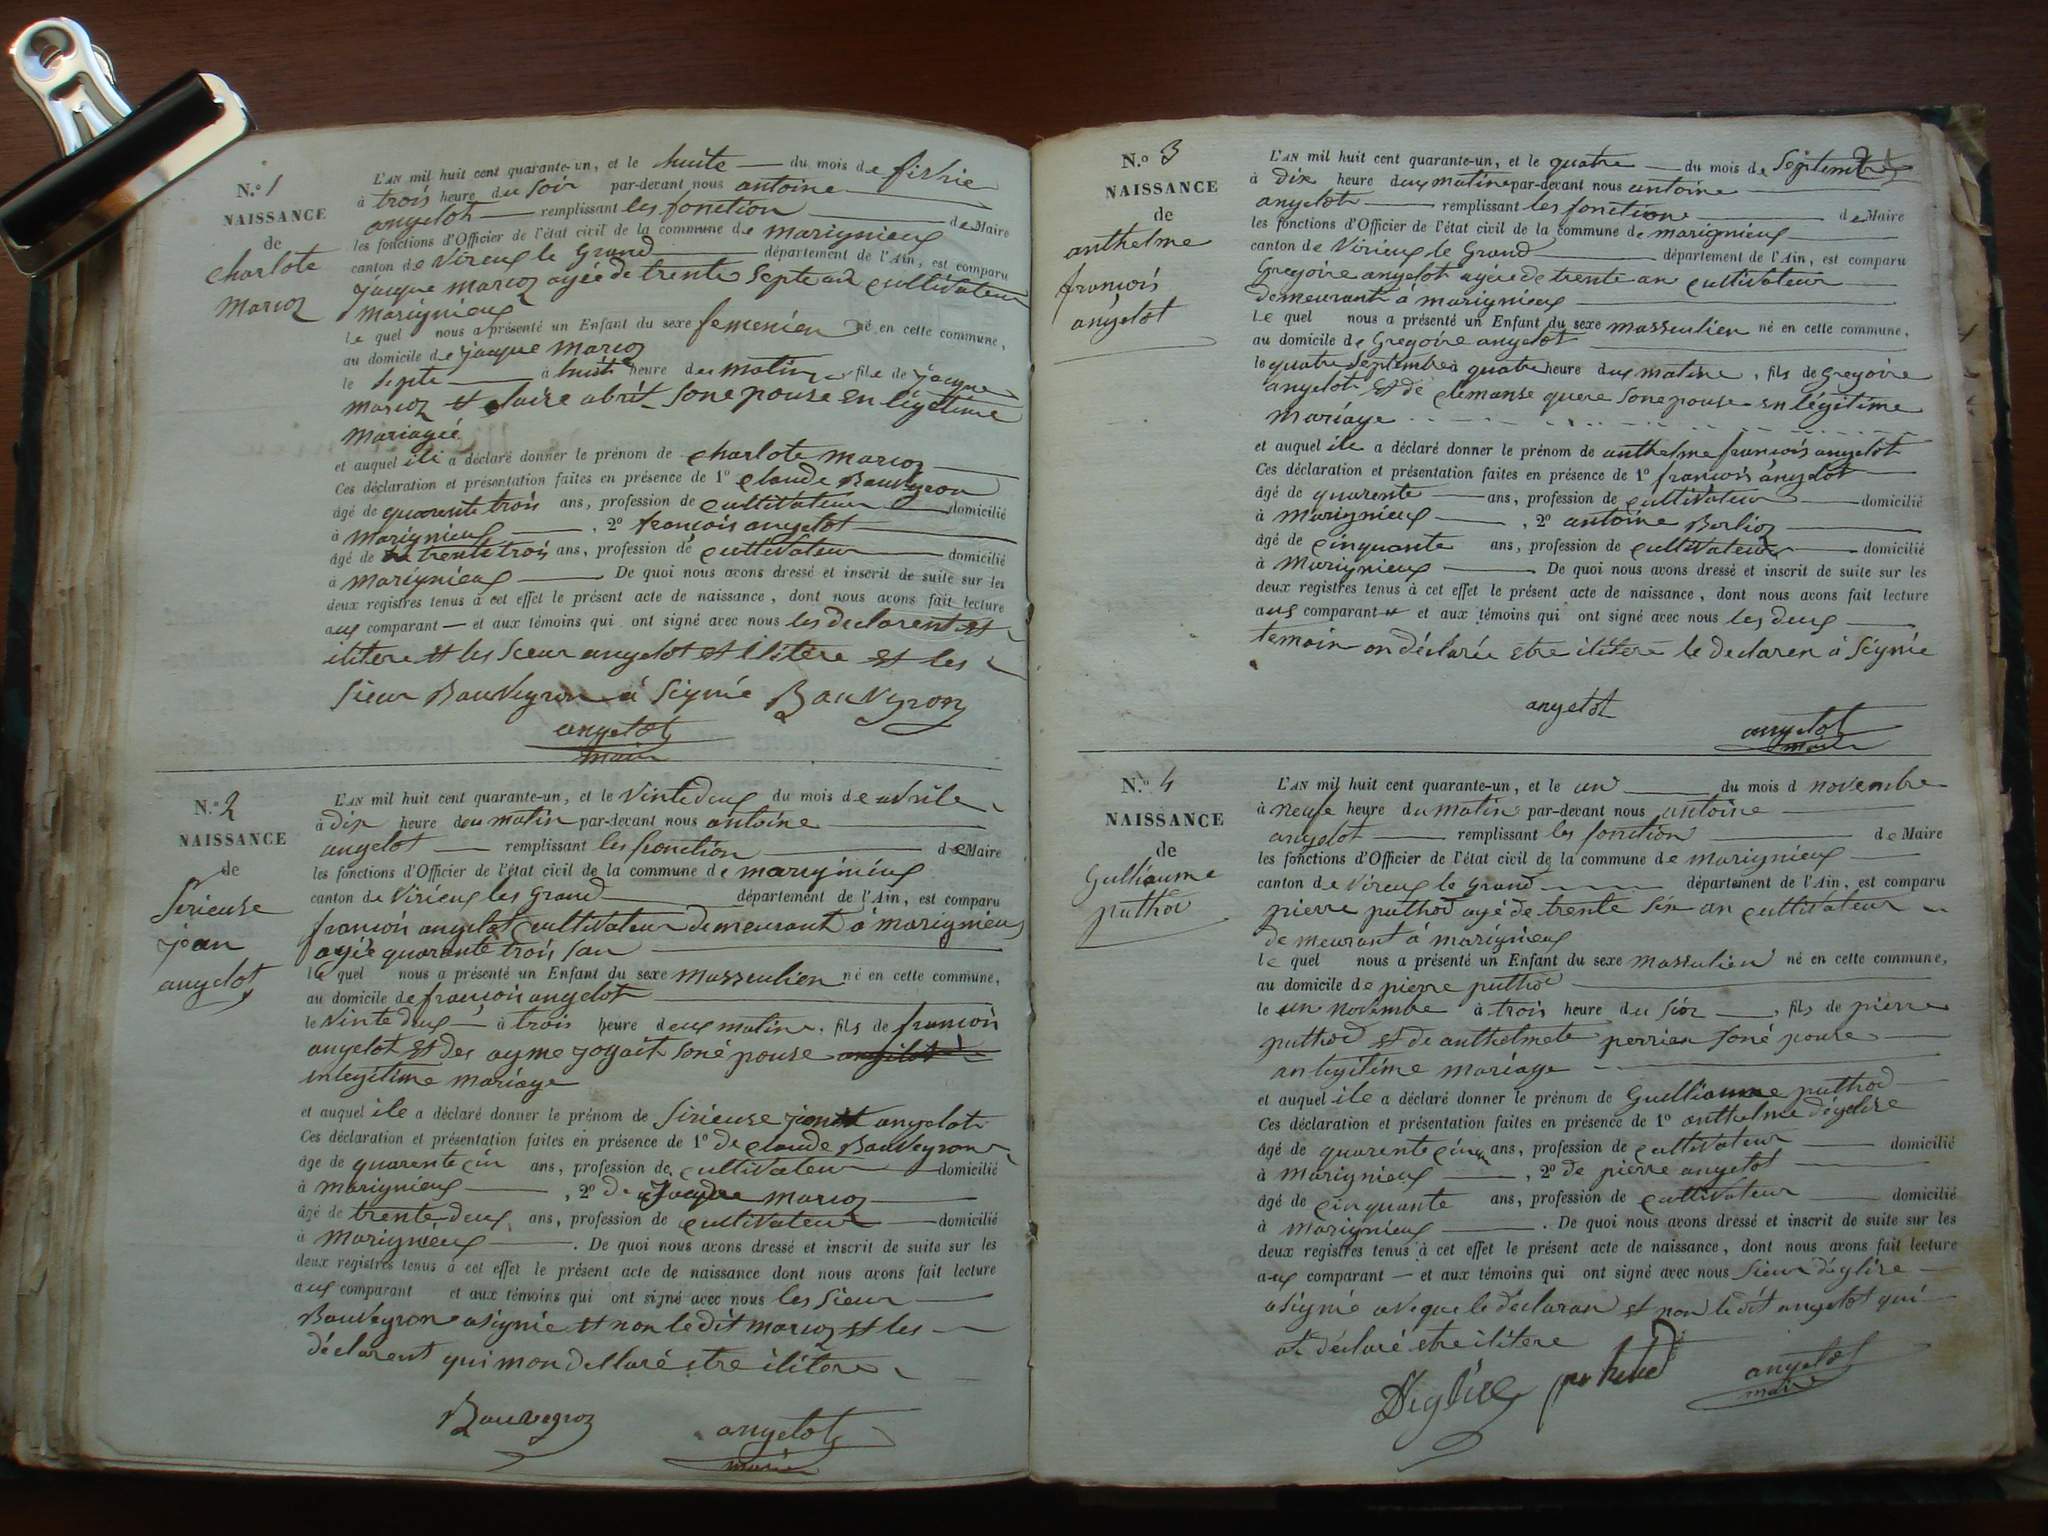 N.º 1
NAISSANCE
de
charlote
marioz
L'AN mil huit cent quarante-un, et le huite du mois de
à trois heure du soir par-devant nous antoine
angelot remplissant les fonction de Maire
les fonctions d'Officier de l'état civil de la commune de marignieux
canton de Vireux le Grand département de l'Ain, est comparu
jacque marioz agée de trente septe an cultivateur
marignieux
le quel nous a présenté un Enfant du sexe femenien né en cette commune,
au domicile de jacque marioz
le septe à huite heure du matin file de jacque
marioz et claire abrit sone pouse en légétime
mariageé
et auquel ile a déclaré donner le prénom de charlote marioz
Ces déclaration et présentation faites en présence de 1º claude Bauveyron
âgé de quarente trois ans, profession de cultivateur domicilié
à marignieux , 2º françois angelot
âgé de trente trois ans, profession de cultivateur domicilié
à marignieux De quoi nous avons dressé et inscrit de suite sur les
deux registres tenus à cet effet le présent acte de naissance, dont nous avons fait lecture
aux comparant et aux témoins qui ont signé avec nous les declarent et
ilitere et les sieur angelot et ilitere et les
sieur Bauveyron à signié Bauvyron
angelot
maire
N.º 2
NAISSANCE
de
Sirieuse
jean
angelot
L'AN mil huit cent quarante-un, et le vinte deux du mois de avrile
à dix heure deu matin par-devant nous antoine
angelot remplissant les fonction de Maire
les fonctions d'Officier de l'état civil de la commune de marignieux
canton de Virieux les Grand département de l'Ain, est comparu
françoin angelot cultivateur demeurant à marignieux
agée quarante trois an
le quel nous a présenté un Enfant du sexe masseulien né en cette commune,
au domicile de françois angelot
le vinte deux à trois heure deux matin, fils de françoin
angelot et des ayme joyait soné pouse
en legitime mariage
et auquel ile a déclaré donner le prénom de sirieuse angelot
Ces déclaration et présentation faites en présence de 1º de claude Bauveyron
âgé de quarente cin ans, profession de cultivateur domicilié
à marignieux , 2º de marioz
âgé de trente deux ans, profession de cultivateur domicilié
à marignieux . De quoi nous avons dressé et inscrit de suite sur les
deux registres tenus à cet effet le présent acte de naissance dont nous avons fait lecture
aux comparant et aux témoins qui ont signé avec nous les sieur
Bauveyron a signie et non le dit marioz et les
déclarent qui mon dellaré stre ilitere
Bauvegroz
angelot
maire
N.º 3
NAISSANCE
de
anthelme
françois
angelot
L'AN mil huit cent quarante-un, et le quatre du mois de septembre
à dix heure deux matin par-devant nous antoine
angelot remplissant les fonction de Maire
les fonctions d'Officier de l'état civil de la commune de marignieux
canton de Virieux le Grand département de l'Ain, est comparu
Gregoire angelot agée de trente an cultivateur
demeurant à marignieux
Le quel nous a présenté un Enfant du sexe masseulien né en cette commune,
au domicile de Gregoire angelot
le quatre septembre à quatre heure dux matine, fils de gregoire
angelot et de clemanse quere sone pouse en légitime
mariage
et auquel ile a déclaré donner le prénom de anthelme françois angelot
Ces déclaration et présentation faites en présence de 1º françois angelot
âgé de quarente ans, profession de cultivateur domicilié
à marignieux , 2º antoine Berlioz
âgé de cinquante ans, profession de cultivateur domicilié
à Marignieux . De quoi nous avons dressé et inscrit de suite sur les
deux registres tenus à cet effet le présent acte de naissance, dont nous avons fait lecture
aux comparant et aux témoins qui ont signé avec nous les deux
temoin on déclarée stre ilitere le declaren à signié
angelot
angelot
maire
N.º 4
NAISSANCE
de
Gulliaume
puthod
L'AN mil huit cent quarante-un, et le un du mois d novembre
à neufe heure du matin par-devant nous antoine
angelot remplissant les fonction de Maire
les fonctions d'Officier de l'état civil de la commune de marignieux
canton de Vireux le Grand département de l'Ain, est comparu
pierre puthod agé de trente six an cultivateur
demeurant à marignieux
le quel nous a présenté un Enfant du sexe masseulien né en cette commune,
au domicile de pierre puthod
le un novembre à trois heure du sior , fils de pierre
puthod et de anthelmete perrien soné pouse
an legitime mariage
et auquel ile a déclaré donner le prénom de Gulliaume puthod
Ces déclaration et présentation faites en présence de 1º anthelme déglise
âgé de quarente cinq ans, profession de cultivateur domicilié
à marignieux , 2º de pierre angelot
âgé de cinquante ans, profession de cultivateur domicilié
à marignieux . De quoi nous avons dressé et inscrit de suite sur les
deux registres tenus à cet effet le présent acte de naissance, dont nous avons fait lecture
aux comparant et aux témoins qui ont signé avec nous sieur déglise
a signié aveque le déclaran et non le dit angelot qui
at déclaré stre ilitere
Déglise puthod angelot
maire